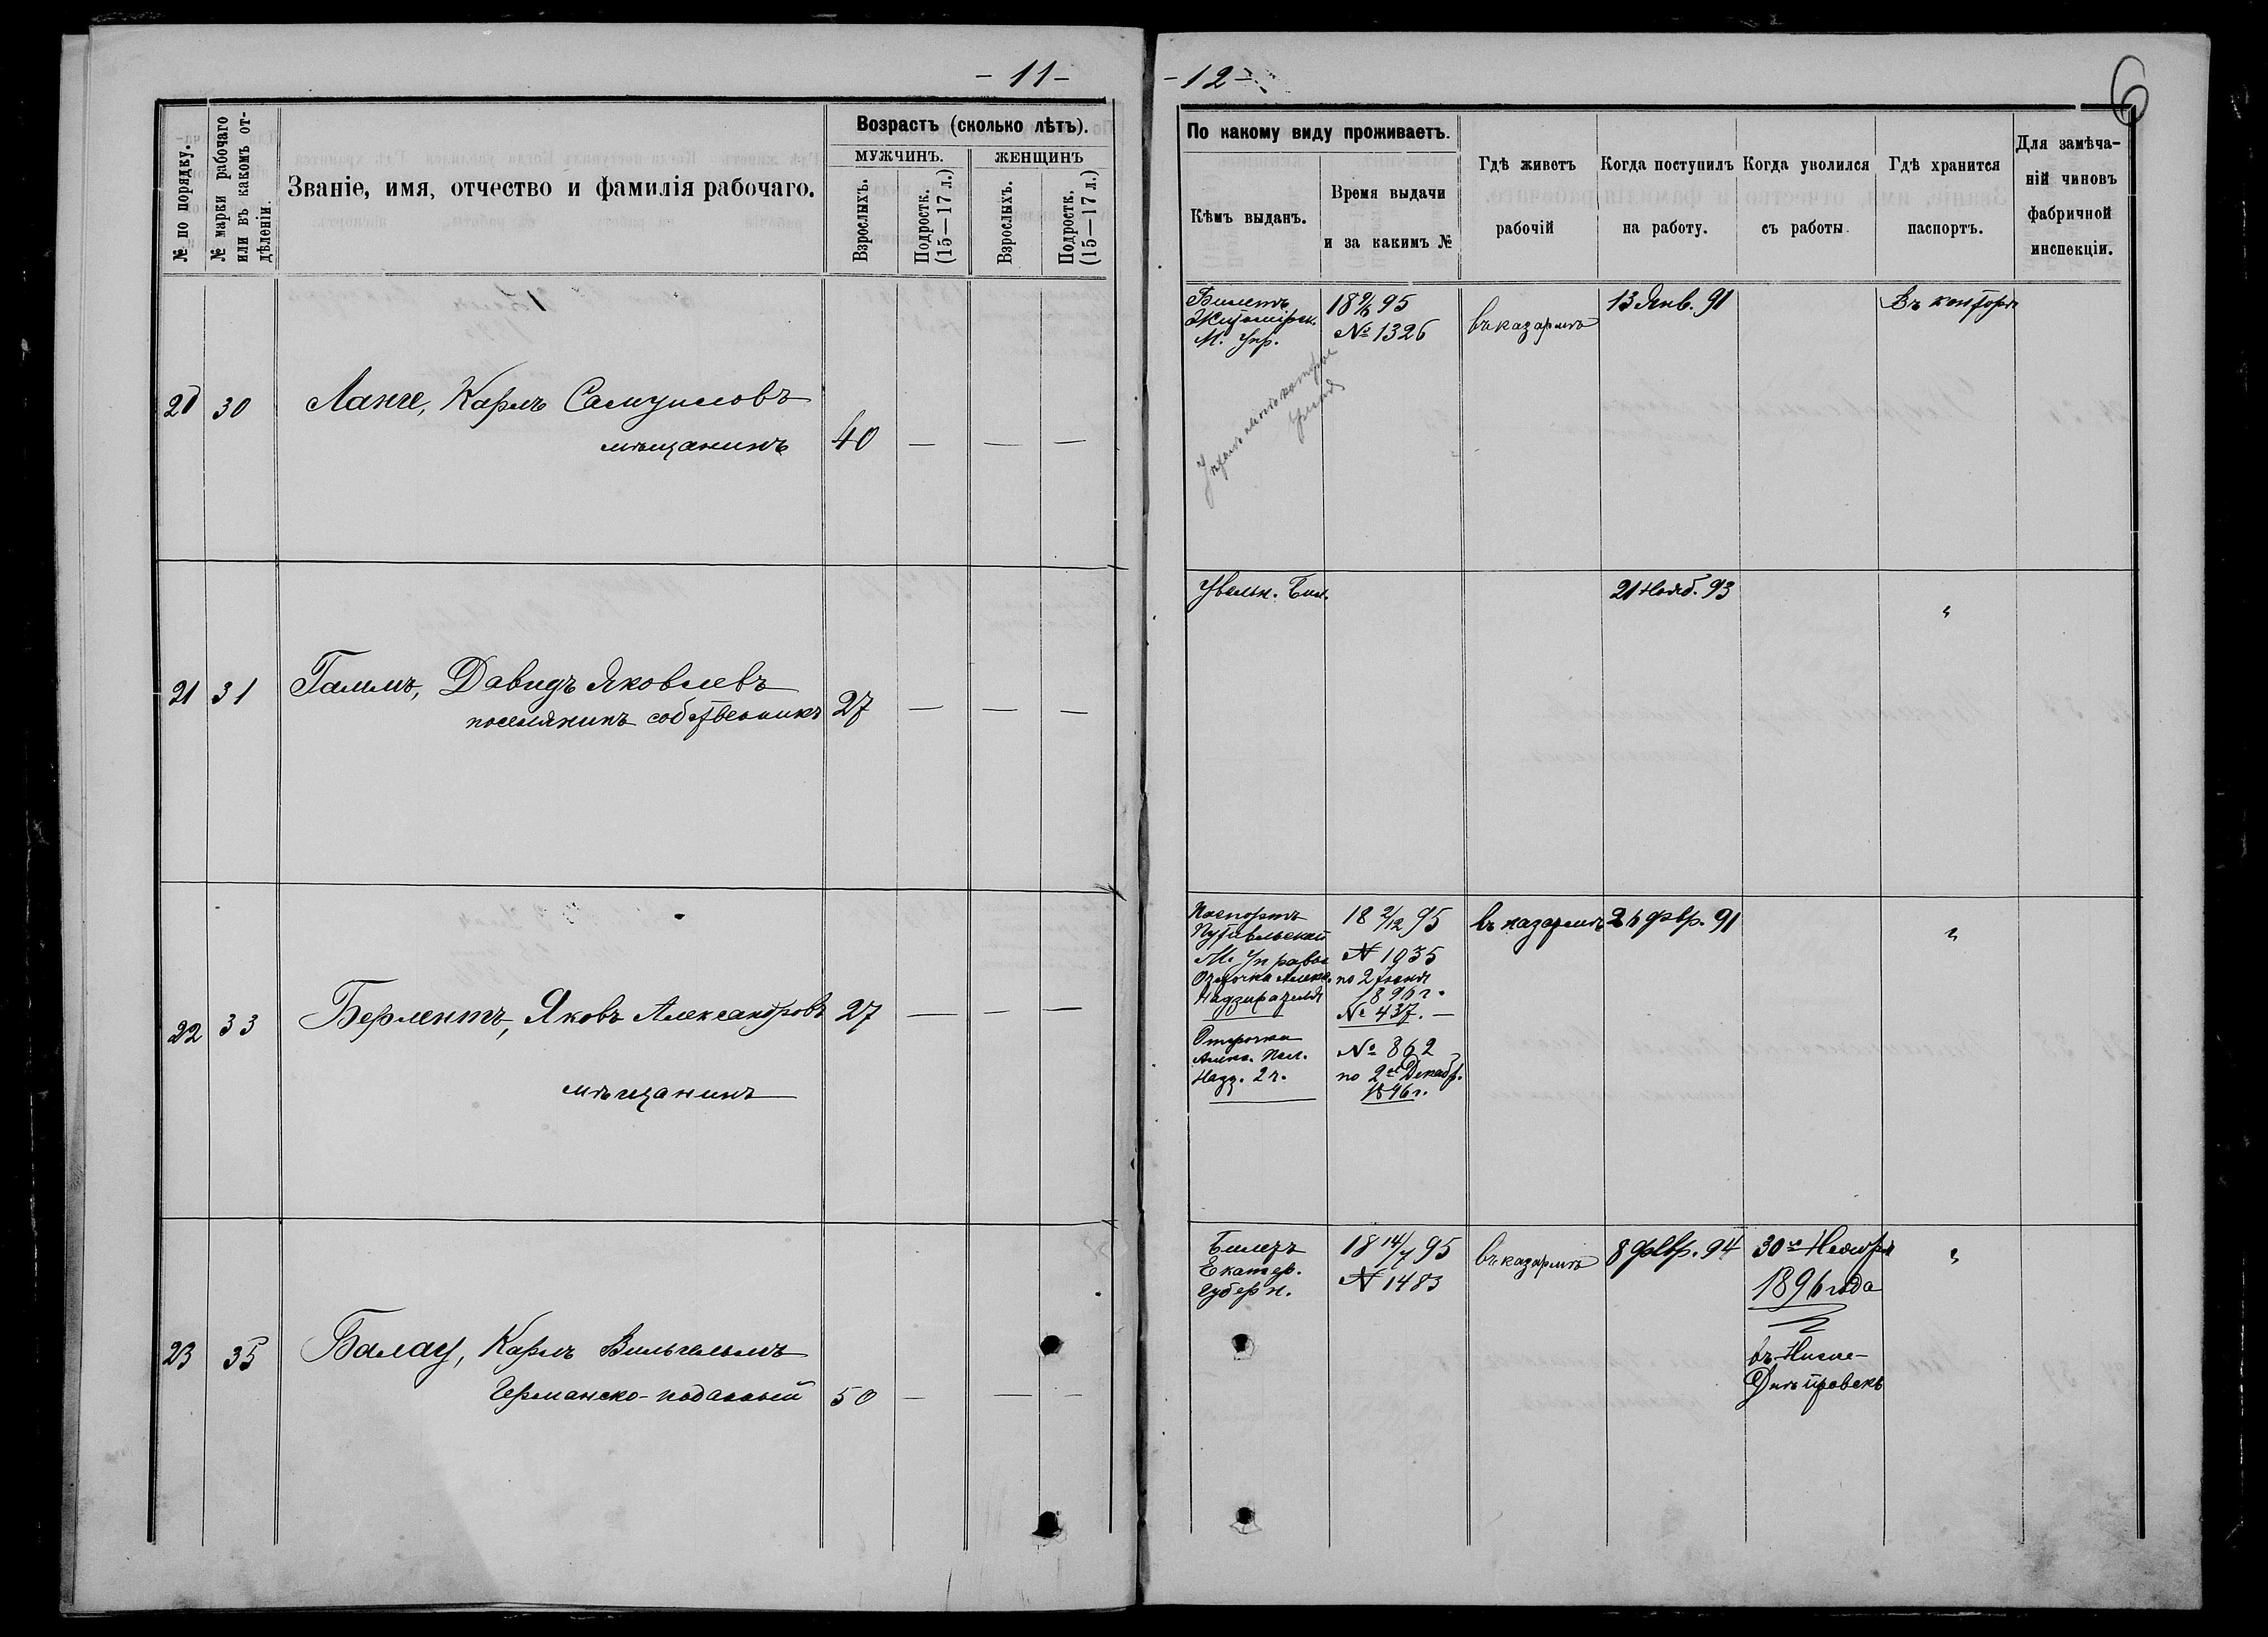 - 11 -
№ по порядку.
№ марки рабочаго или въ какомъ отдѣленіи.
Званіе, имя, отчество и фамилія рабочаго.
Возрастъ (сколько лѣтъ).
мужчинъ.
женщинъ
Взрослыхъ.
Подростк. (15—17 л.)
Взрослыхъ.
Подростк. (15—17 л.)
20 30 Ланге, Карлъ Самуиловъ
мѣщанинъ 40 — — —
21 31 Гаммъ, Давидъ Яковлевъ
поселянинъ собственникъ 27 — — —
22 33 Берлентъ, Яковъ Александровъ 27 — — —
мѣщанинъ
23 35 Балау, Карлъ Вильгельмъ
Германско-поданный 50 — — —
- 12 -
6
По какому виду проживаетъ.
Кѣмъ выданъ.
Время выдачи
и за какимъ №
Гдѣ живетъ
рабочій
Когда поступилъ
на работу.
Когда уволился
съ работы.
Гдѣ хранится
паспортъ.
Для замѣча-
ній чиновъ
фабричной
инспекціи.
Билетъ
Житомірск.
М. Упр.
95
№ 1326
въ казармѣ
13 Янв. 91
Въ конторѣ
Увольн. Бил.
21 Нояб. 93
"
Паспортъ
Путивльской
М. Управы
Отсрочка Алекс.
Надзирателя
18 2/12 95
№ 1935
по 2 Іюня
1896 г.
№ 437. —
Отсрочка
Алекс. Пол.
Надз. 2 ч.
№ 862
по 2е Декабр.
1896 г.
въ казармѣ
26 Фвр. 91
"
Билетъ
Екатер.
Губерн.
18 14/7 95
№ 1483
въ казармѣ
8 Фвр. 94
30го Ноября
1896 года
въ Нижне-
Днѣпровскъ
"